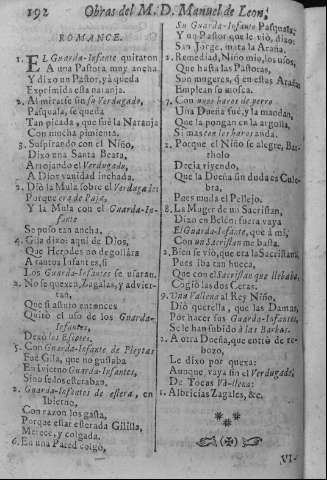 192 Obras del M. D. Manuel de Leon,
ROMANCE.
1. EL Guarda-Infante quitaron
A una Pastora muy ancha
Y dixo un Pastor, ya queda
Exprimida esta naranja.
2. Al mirarse sin su Verdugado,
Pasquala, se queda
Tan picada, que fuè la Naranja
Con mucha pimienta.
3. Suspirando con el Niño,
Dixo una Santa Beata,
Arrojando el Verdugado,
A Dios vanidad hinchada.
2. Diò la Mula sobre el Verdugado:
Porque era de Paja,
Y la Mula con el Guarda-In-
fante
Se puso tan ancha.
4. Gila dixo: aqui de Dios,
Que Herodes no degollára
A tantos Infantes, si
Los Guarda-Infantes se usaran.
2. No se quexen, Zagalas, y advier-
tan,
Que si assuto entonces
Quitò el uso de los Guarda-
Infantes,
Dexò los
5. Con Guarda-Infante de Pleytas
Fuè Gila, que no gustaba
En Ivierno Guarda-Infantes,
Sino se los esteraban.
2. Guarda-Infantes de estera, en
Ibierno,
Con razon los gasta,
Porque estar esterada Gililla,
Merece, y colgada.
6. En una Pared colgò,
Su Guarda-Infante Pasquala;
Y un Pastor que le viò, dixo:
San Jorge, mata la Araña.
2. Remediad, Niño mio, los usos,
Que hasta las Pastoras,
Sus mugeres, ò en estas Arañas
Emplean su mosca.
7. Con unos haros de perro
Una Dueña fuè, y la mandan,
Que la pongan en la argolla,
Si mas con los haros anda.
2. Porque el Niño se alegre, Bar-
tholo
Decia riyendo,
Que la Dueña sin duda es Cule-
bra,
Pues muda el Pellejo.
8. La Muger de un Sacristan,
Dixo en Belèn: fuera vaya
El Guarda-Infante, que à mi,
Con un Sacristan me basta.
2. Bien se viò, que era la Sacristana,
Pues iba tan hueca,
Que con el Sacristan que llebaba,
Cogiò las dos Ceras.
9. Una Vallena al Rey Niño,
Diò querella, que las Damas,
Por hacer sus Guarda-Infantes,
Se le han subido à las Barbas.
2. A otra Dueña, que entrò de re-
bozo,
Le dixo por quexa:
Aunque, vaya sin el Verdugado,
De Tocas Va-llena:
1. Albricias Zagales, &c.
VI-